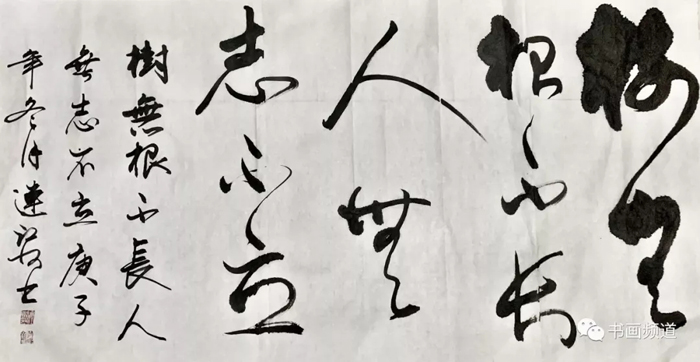 樹無
根不长
人無
志不立
樹無根不長人
無志不立庚子
年冬月連书
书画频道